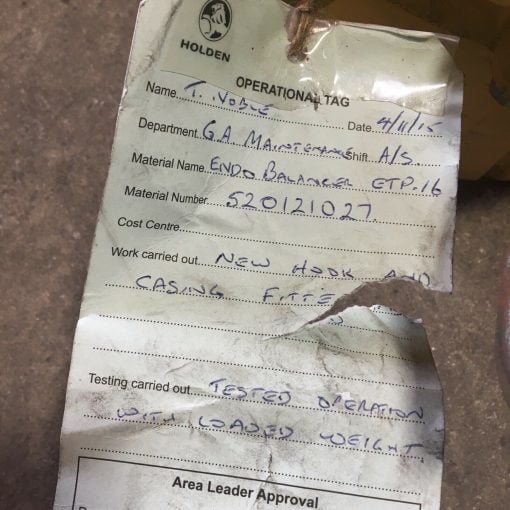 HOLDEN
OPERATIONAL TAG
Name T. NOBLE Date 4/11/15
Department G.A. MAINTENANCE Shift A/S
Material Name ENDO BALANCER ETP.16
Material Number 520121027.
Cost Centre
Work carried out NEW HOOK AND
CASING FITTE
Testing carried out TESTED OPERATION
WITH LOADED WEIGHT.
Area Leader Approval